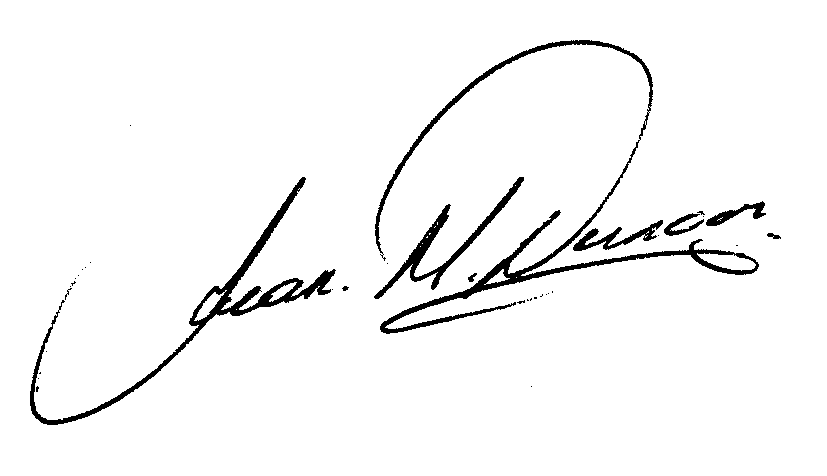 Jean. M. Duncan.